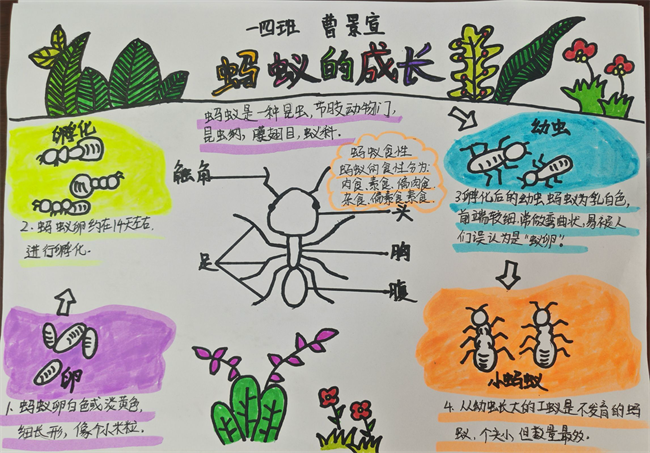 一四班 曹景宣
蚂蚁的成长
蚂蚁是一种昆虫,节肢动物门,
昆虫纲,膜翅目,蚁科.
孵化
2.蚂蚁卵约在14天左右.
进行孵化.
卵
1.蚂蚁卵白色或淡黄色,
细长形,像个小米粒.
触角
头
胸
腹
足
蚂蚁食性
蚂蚁的食性分为:
肉食.素食.偏肉食
杂食.偏素食素食.
幼虫
3.孵化后的幼虫蚂蚁为乳白色,
前端较细.常做弯曲状,易被人
们误认为是“蚁卵”.
小蚂蚁
4.从幼虫长大的工蚁是不发育的蚂
蚁,个头小但数量最多.